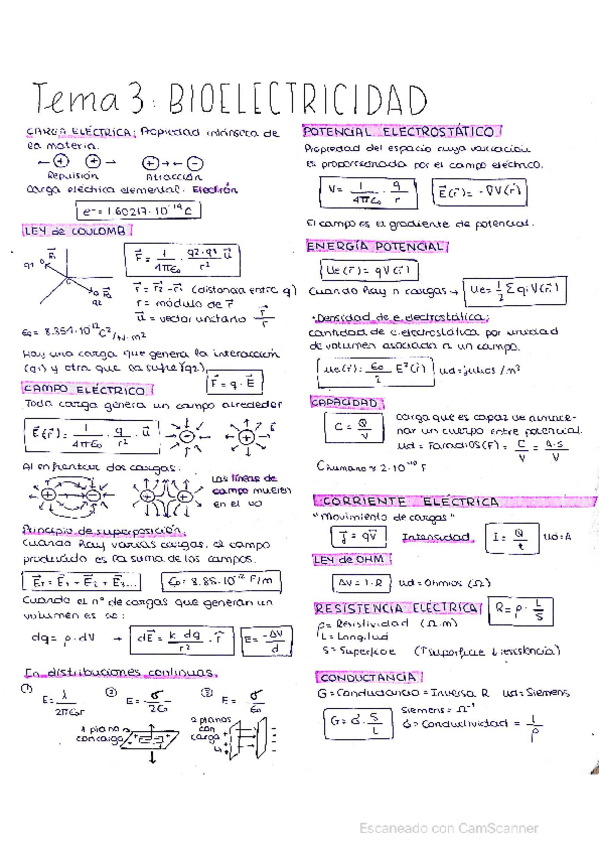 Tema 3: BIOELECTRICIDAD
CARGA ELÉCTRICA: Propiedad intrínseca de
la materia.
Repulsión Atracción
Carga eléctrica elemental: Electrón
e⁻ = 1.60217·10⁻¹⁹C
LEY de COULOMB
F = 1/4πε₀ · q2·q1/r² u
r = r₂ - r₁ (distancia entre q)
r = módulo de r
u = vector unitario r/r
q1
q2
ε₀ = 8.354·10⁻¹²C²/N·m²
Hay una carga que genera la interacción
(q1) y otra que la sufre (q2)
F = q·E
CAMPO ELÉCTRICO
Toda carga genera un campo alrededor
E(r) = 1/4πε₀ · q/r² · u
Al enfrentar dos cargas:
Las líneas de
campo mueren
en el
Principio de superposición:
Cuando hay varias cargas, el campo
producido es la suma de los campos.
E_T = E₁ + E₂ + E₃... ε₀ = 8.85·10⁻¹² F/m
Cuando el nº de cargas que generan un
volumen es
dq = ρ·dV → dE = k dq/r² · r E = -ΔV/d
En distribuciones continuas:
① E = λ/2πε₀r ② E = σ/2ε₀ ③ E = σ/ε₀
1 plano
con carga
2 planos
con
carga
POTENCIAL ELECTROSTÁTICO
Propiedad del espacio cuya variación
es proporcionada por el campo eléctrico.
V = 1/4πε₀ · q/r E(r) = -∇V(r)
El campo es el gradiente de potencial.
ENERGÍA POTENCIAL
Ue(r) = qV(r)
Cuando hay n cargas → Ue = 1/2 Σq·V(r)
·Densidad de e. electrostática:
cantidad de e. electrostática por unidad
de volumen asociada a un campo.
ue(r) = ε₀/2 E²(r) ud = julios/m³
CAPACIDAD
C = Q/V
carga que es capaz de almace-
nar un cuerpo entre potencial.
ud = Faradios(F) = C/V = A·S/V
C humano ≈ 2·10⁻¹⁰ F
CORRIENTE ELÉCTRICA
"Movimiento de cargas"
j = qv Intensidad: I = Q/t ud = A
LEY de OHM
ΔV = I·R ud = Ohmios (Ω)
RESISTENCIA ELÉCTRICA R = ρ · L/S
ρ = Resistividad (Ω·m)
L = Longitud
S = Superficie (↑superficie ↓resistencia)
CONDUCTANCIA
G = Conductancia = Inversa R ud = Siemens
Siemens = Ω⁻¹
G = σ · S/L
σ = Conductividad = 1/ρ
Escaneado con CamScanner